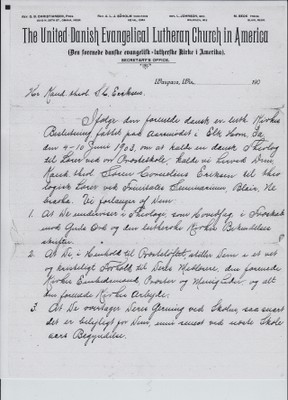 The United Danish Evangelical Lutheran Church in America
(Den forenede danske evangelisk-lutherske Kirke i Amerika).
SECRETARY'S OFFICE.
Waupaca, Wis., 190
Hr. Kand. theol. S. C. Eriksen.
Ifølge den forenede dansk ev. luth. Kirkes
Beslutning fattet paa Aarsmødet i Elk Horn, Ia.
den 4-10 Juni 1903, om at kalde en dansk Theolog
til Lærer ved vor Præsteskole, kalde vi herved Dem,
Kand. theol. Søren Cornelius Eriksen til theo-
logisk Lærer ved Trinitatis Seminarium, Blair, Ne-
braska. Vi forlanger af Dem:
1. At De underviser i Theologi, som Hovedfag, i Troskab
mod Guds Ord og den lutherske Kirkes Bekendelses-
skrifter.
2. At De, i Henhold til Præsteløftet, stiller Dem i et ret
og kristeligt Forhold til Deres Medlærere, den forenede
Kirkes Embedsmænd, Præster og Menigheder, og alt
den forenede Kirkes Arbejde.
3. At De overtager Deres Gerning ved Skolen, saa snart
det er belejligt for Dem, men senest ved næste Skole-
aars Begyndelse.